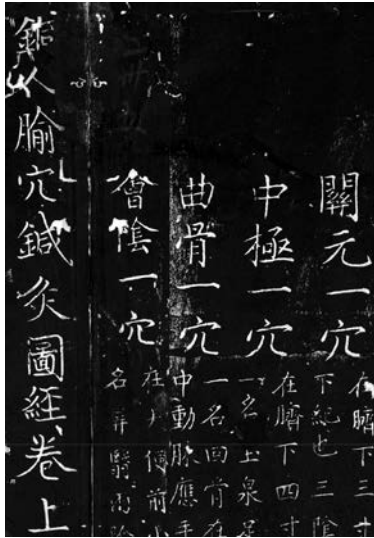 關元一穴
在臍下三寸
下紀也三陰
中極一穴
在臍下四寸
一名玉泉足
曲骨一穴
一名回骨在
中動脉應手
會陰一穴
在大便前小
名屏翳兩陰
銅人腧穴鍼灸圖經卷上